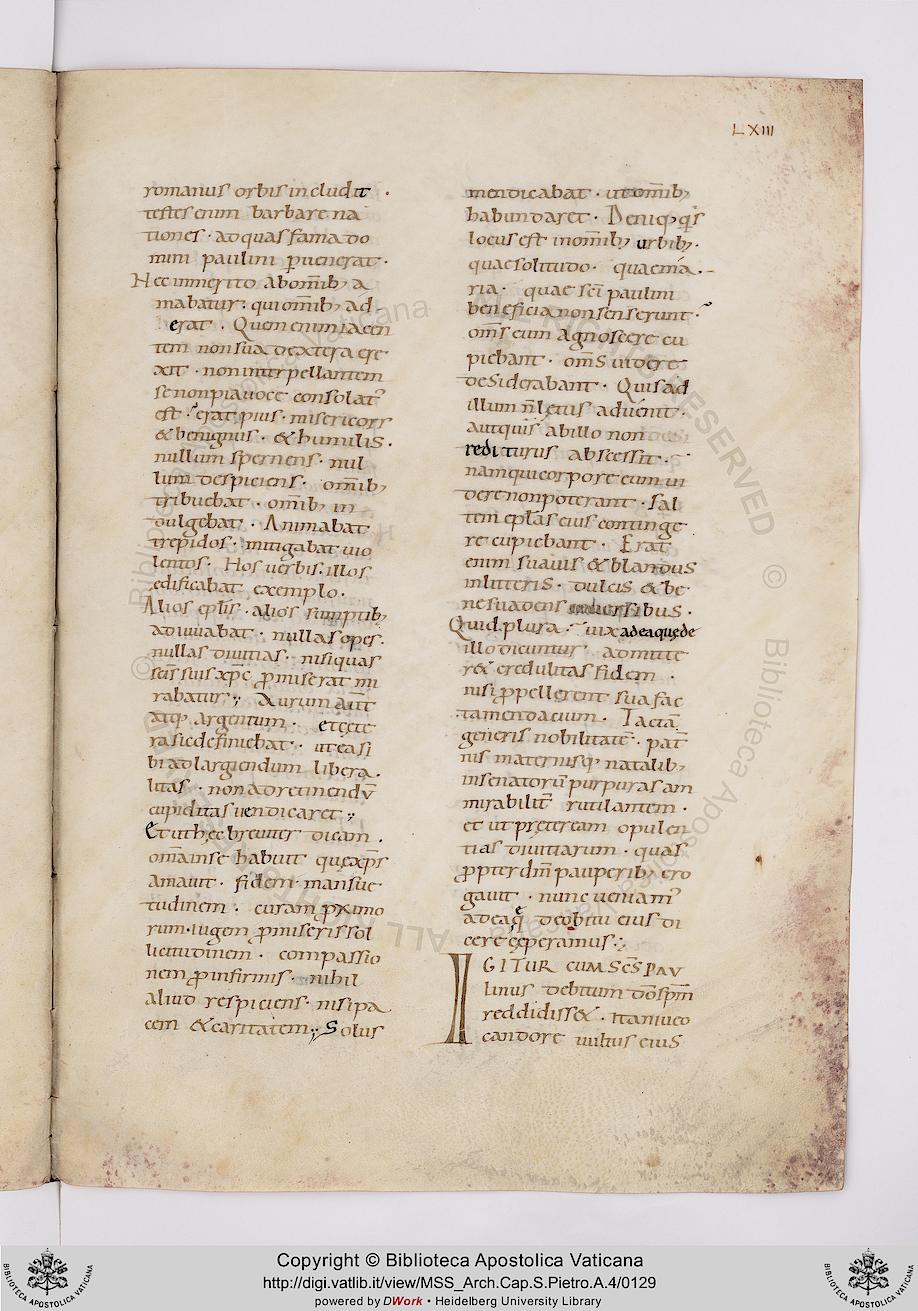 LXIII
romanus orbis includit ·
testes enim barbare na
tiones · ad quas fama do
mini paulini puenerat ·
Nec inmerito abomīb; a
mabatur · qui omīb; ad
erat · Quem enim iacen
tem non sua dextera ere
xit · non interpellantem
se non pia uoce consolat᾿
est · erat pius · misericors
& benignus · & humilis ·
nullum spernens · nul
lum despiciens · omīb;
tribuebat · omīb; in
dulgebat · Animabat
trepidos · mitigabat uio
lentos · Hos uerbis · illos
edificabat exemplo ·
Alios eplis · alios sumptib;
adiuuabat · nullas opes ·
nullas diuitias · nisi quas
scīs suis xp̄c p̄miserat mi
rabatur ; Aurum aūt
atq; argentum · et cęte
ra sic definiebat · ut ea si
bi ad largiendum libera
litas · non ad retinendū
cupiditas uendicaret ;
Et ut hęc breuiter dicam ·
omā in se habuit quę xp̄s
amauit · fidem · mansue
tudinem · curam p̄ximo
rum · iugem p̄ miseris sol
licitudinem · compassio
nem p̄ infirmis · nihil
aliud respiciens · nisi pa
cem & caritatem ; Solus
mendicabat · ut omīb;
habundaret · Deniq; q̄s
locus est in omīb; urbib; ·
quae solitudo · quae ma
ria · quae scī paulini
beneficia non senserunt ·
om̄s eum agnoscere cu
piebant · om̄s uidere
desiderabant · Quis ad
illum n̄ letus aduenit ·
aut quis ab illo non
rediturus abscessit ·
nam qui corpore eum ui
dere non poterant · Sal
tem ep̄las eius continge
re cupiebant · Erat
enim suauis & blandus
in litteris · dulcis & be
ne suadens
Quid plura · uix adea quęde
illo dicuntur admitte
r& credulitas fidem ·
nisi p̄pellerent sua fac
ta mendacium · Iactā
generis nobilitatē · pat̄
nis maternisq; natalib;
in senatorū purpuras am
mirabilit̄ rutilantem ·
et ut pręteream opulen
tias diuitiarum · quas
p̄pter dm̄ pauperib; ero
gauit · nunc ueniam᾿
ad ea quę de obitu eius di
cere cęperamus ·
IGITUR CUM SC̄S PAU
linus debitum dō sp̄m
reddidiss& · tta niueo
candore uultus eius
Copyright © Biblioteca Apostolica Vaticana
http://digi.vatlib.it/view/MSS_Arch.Cap.S.Pietro.A.4/0129
powered by DWork • Heidelberg University Library
BIBLIOTECA APOSTOLICA VATICANA
BIBLIOTECA APOSTOLICA VATICANA